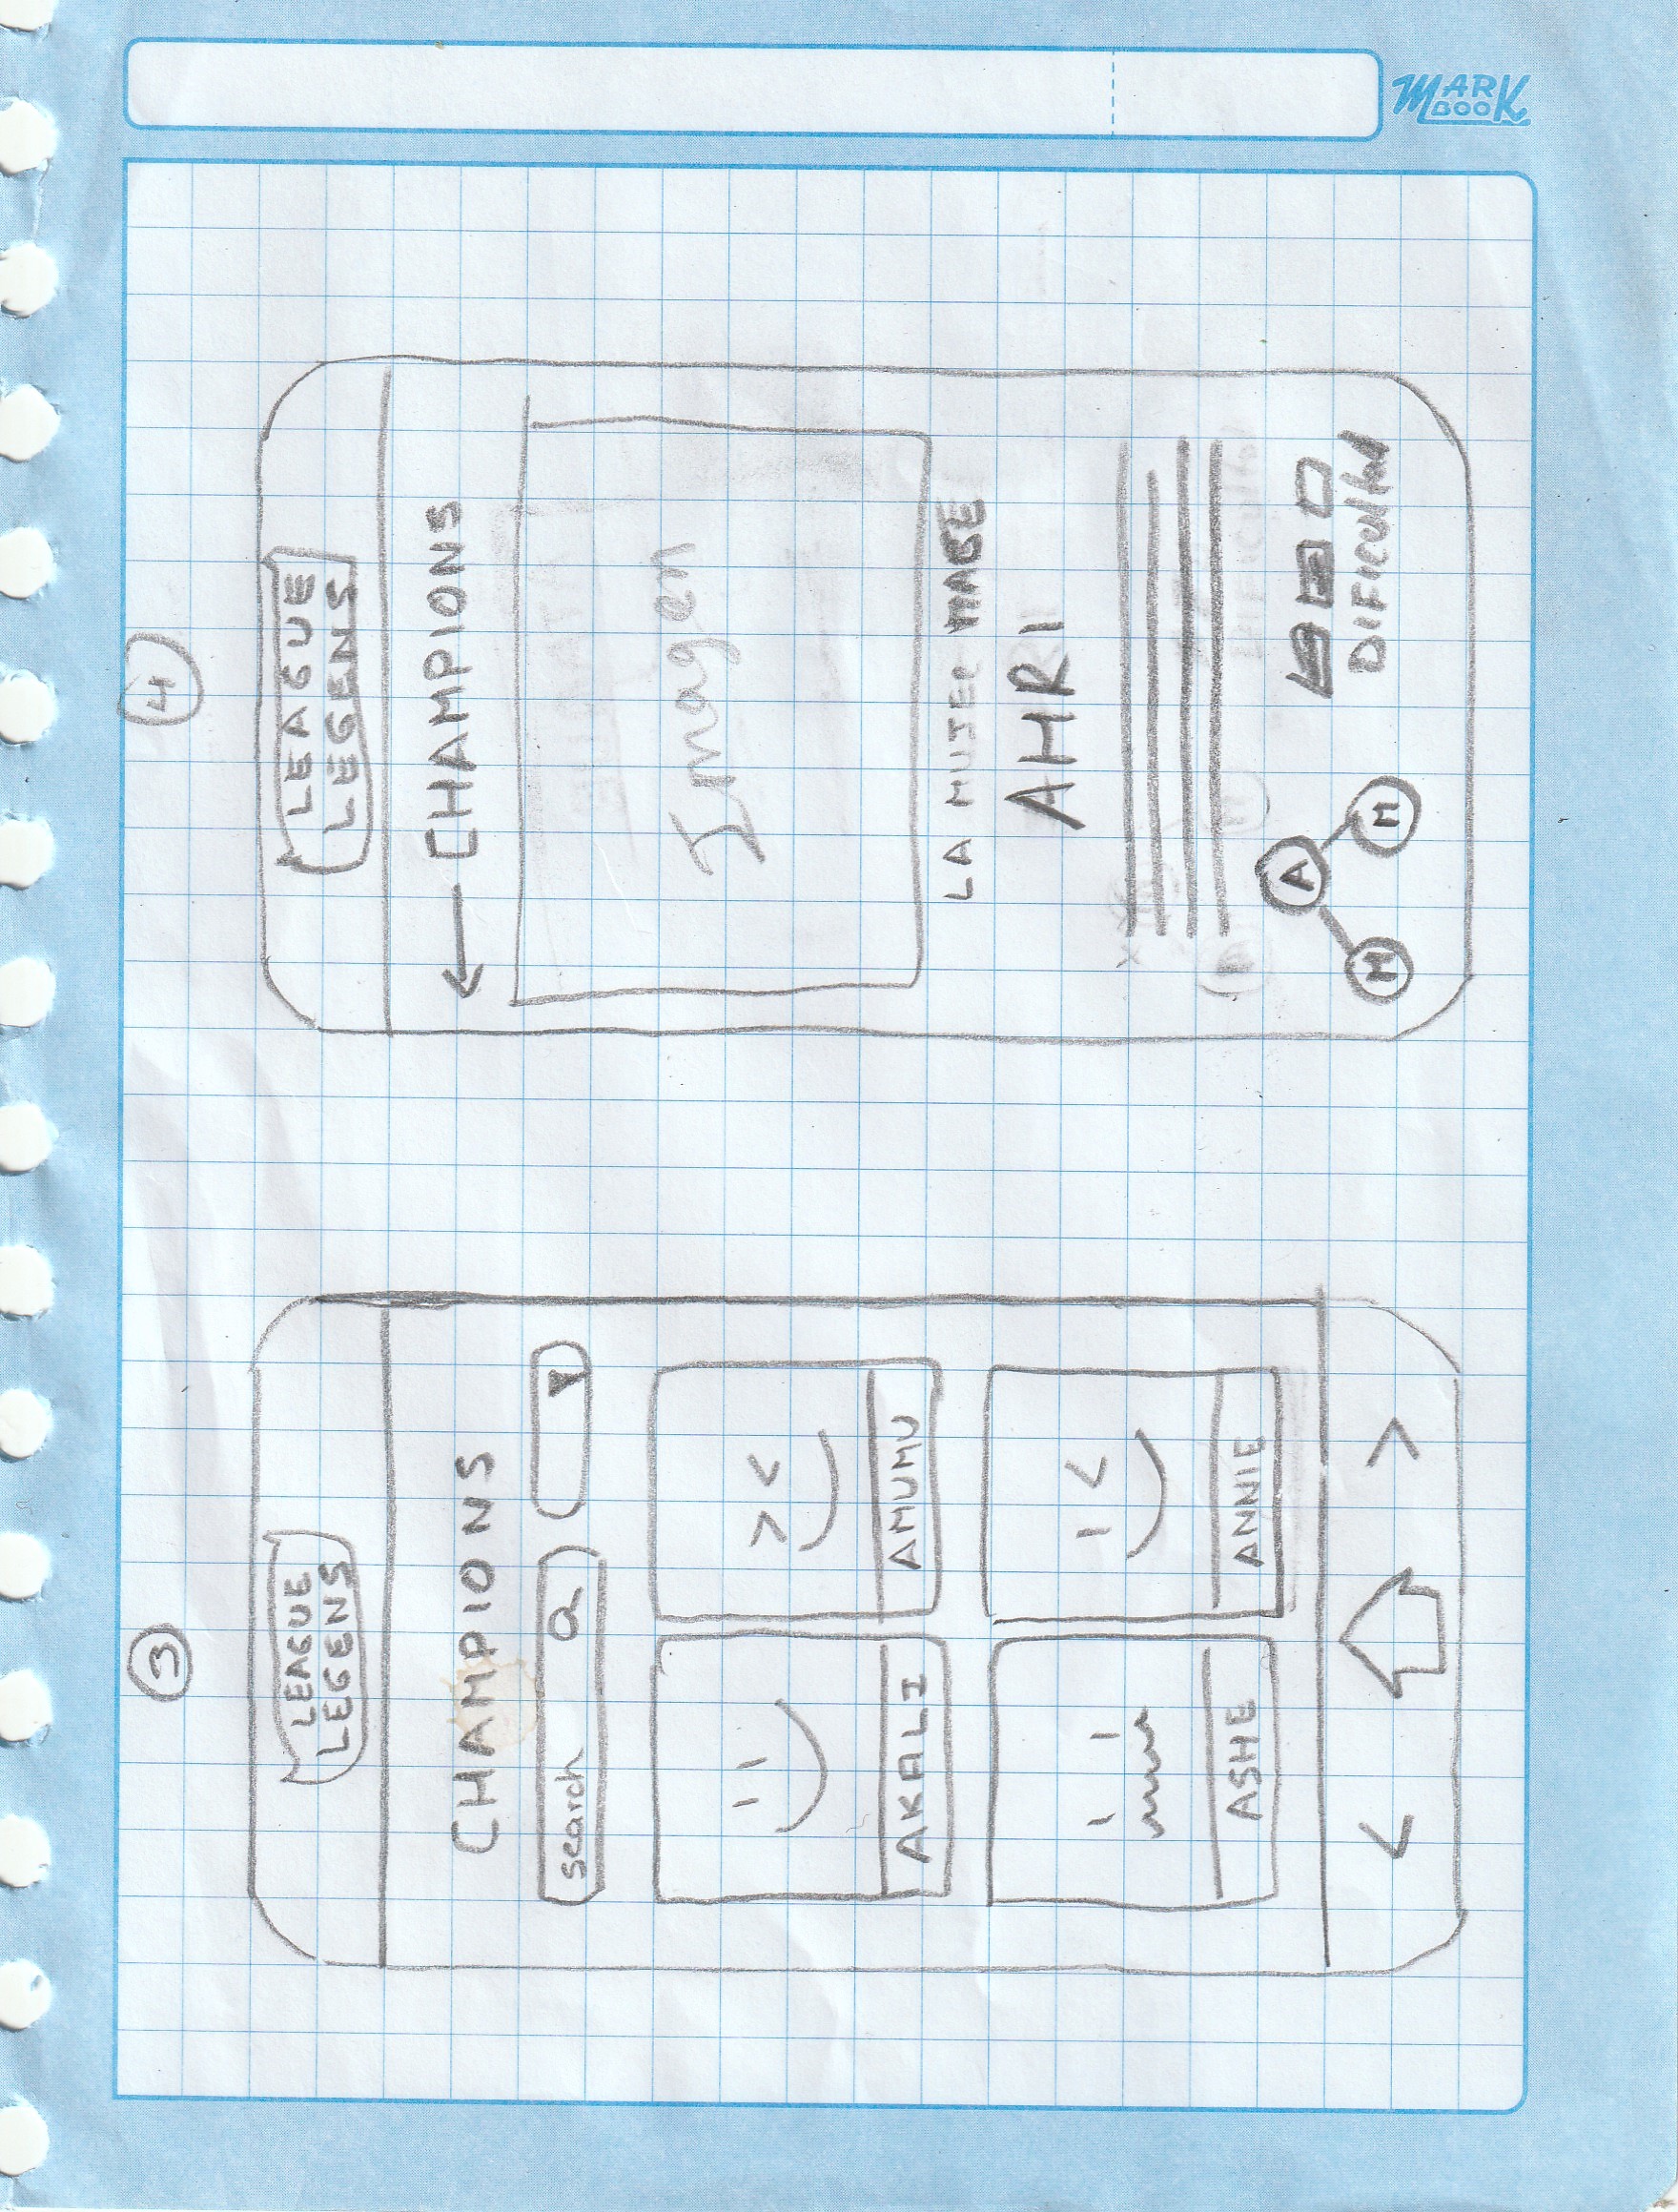 3
LEAGUE
LEGENS
CHAMPIONS
search
AKALI
AMUMU
ASHE
ANNIE
4
LEAGUE
LEGENS
CHAMPIONS
Imagen
LA MUJER MAGE
AHRI
A
M
M
DIFICultad
MARK
BOOK